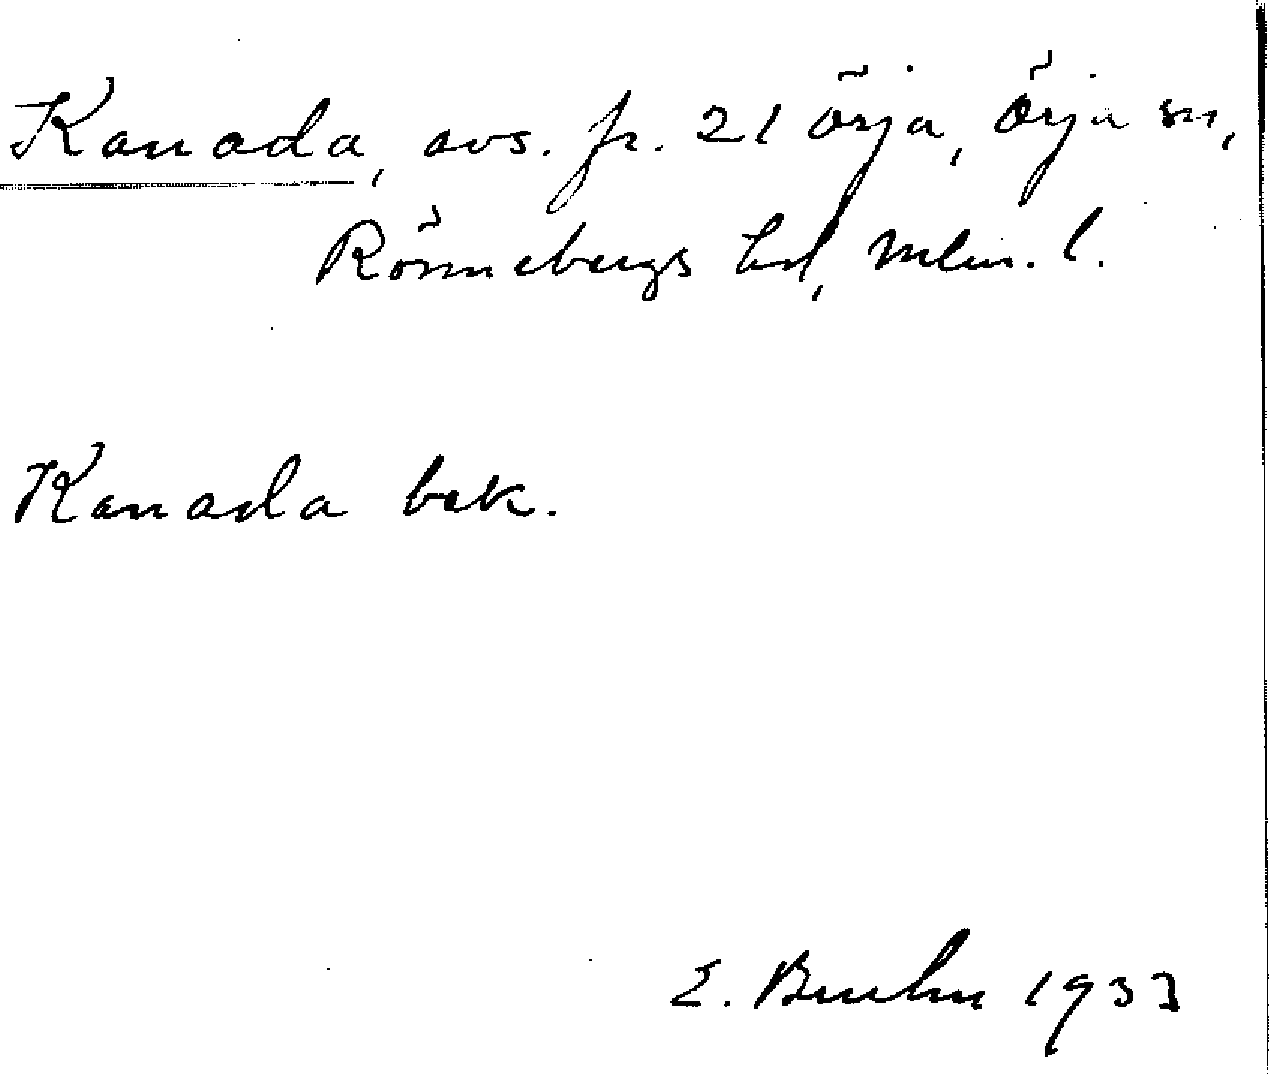 Kanada, avs. fr. 21 Örja, Örja sn,
Rönnebergs hd, Mlm. l.
Kanada bek.
E. Bruhn 1933